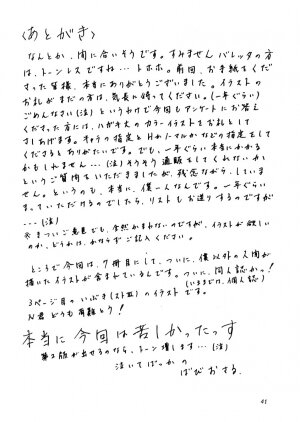 〈あとがき〉
なんとか、間に合いそうです。すみません バレッタの方
は、トーンレスですね…トホホ。前回、お手紙をくだ
さった皆様、本当にありがとうございました。イラストの
お礼がまだの方は、気長に待ってください。(一年ぐらい)
ごめんなさい(泣)というわけで今回もアンケートにお答え
くださった方には、ハガキ大のカラーイラストでお礼として
さしあげます。キャラの指定とHか/ーマルかなどの指定をして
くださるとありがたいです。でも、一年ぐらい本当にかかる
かもしれません…(泣)そうそう通販をしてくれないか
というご質問をいただきましたが、残念ながら、していま
せん。というのも、本当に、僕一人なんです。一年ぐらい
まっていただけるのでしたら、リストもお送りするのですが
…(泣)
※きまついご意見でも、全然かまわないのですが、イラストが欲しい
のか、どうかは、かならずご記入ください。
ところで今回は、7冊目にして、ついに、僕以外の人間が
描いたイラストが含まれているんです。ついに、同人誌かっ!
(いままでは、個人誌)
3ページ目のいぶき(スト Ⅲ)のイラストです。
N君どうも有難とう!
本当に今回は苦しかったっす
第2版が出せるのなら、トーン増します…(泣)
泣いてばっかの
ばびおさる.
41